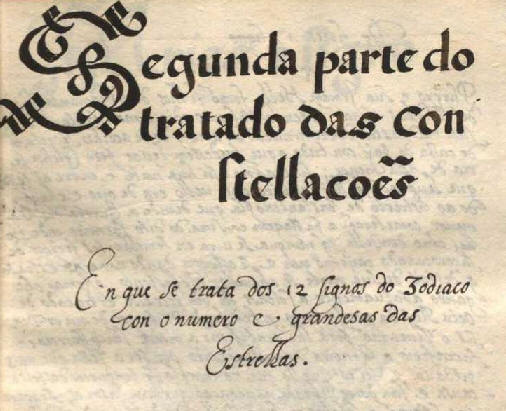 Segunda parte do
tratado das Con
stellacoẽs
En que se trata dos 12 signos do Zodiaco
con o numero e grandesas das
Estrellas.